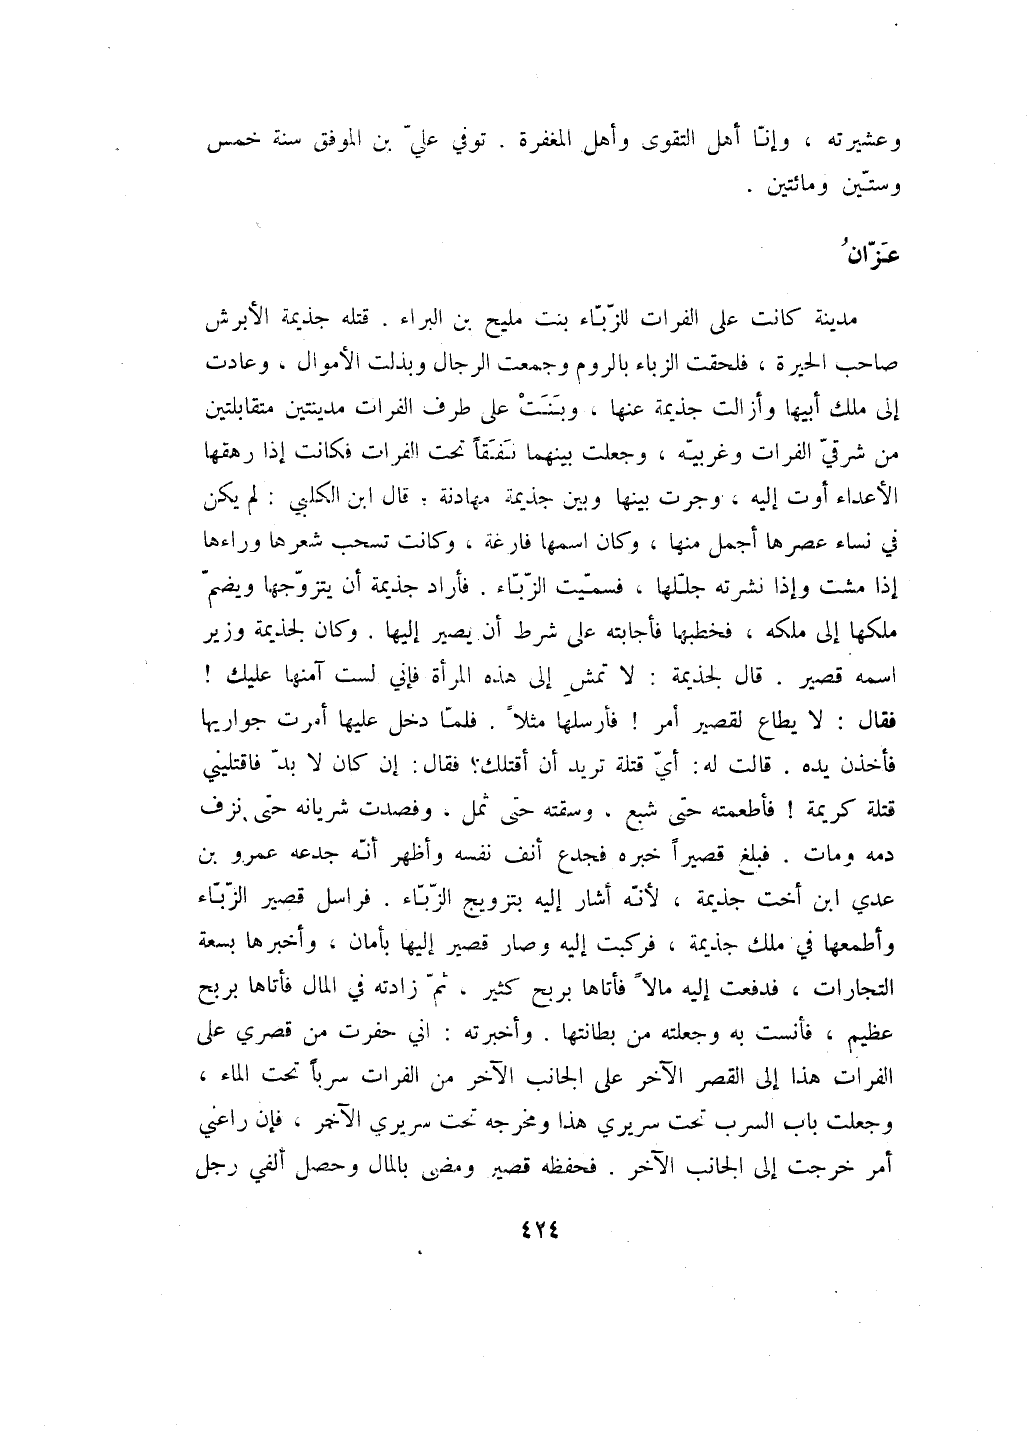 وعشيرته ، وإنّا أهل التقوى وأهل المغفرة . توفي عليّ بن الموفق سنة خمس
وستّين ومائتين .
عَزّانُ
مدينة كانت على الفرات للزّبّاء بنت مليح بن البراء . قتله جذيمة الأبرش
صاحب الحيرة ، فلحقت الزباء بالروم وجمعت الرجال وبذلت الأموال ، وعادت
إلى ملك أبيها وأزالت جذيمة عنها ، وبَنَتْ على طرف الفرات مدينتين متقابلتين
من شرقيّ الفرات وغربيّه ، وجعلت بينهما نَفَقاً تحت الفرات فكانت إذا رهقها
الأعداء أوت إليه ، وجرت بينها وبين جذيمة مهادنة . قال ابن الكلبي : لم يكن
في نساء عصرها أجمل منها ، وكان اسمها فارغة ، وكانت تسحب شعرها وراءها
إذا مشت وإذا نشرته جلّلها ، فسمّيت الزّبّاء . فأراد جذيمة أن يتزوّجها ويضمّ
ملكها إلى ملكه ، فخطبها فأجابته على شرط أن يصير إليها . وكان لجذيمة وزير
اسمه قصير . قال لجذيمة : لا تمشِ إلى هذه المرأة فإني لست آمنها عليك !
فقال : لا يطاع لقصير أمر ! فأرسلها مثلاً . فلمّا دخل عليها أمرت جواريها
فأخذن يده . قالت له: أيّ قتلة تريد أن أقتلك؟ فقال: إن كان لا بدّ فاقتليني
قتلة كريمة ! فأطعمته حتّى شبع . وسقته حتّى ثمل . وفصدت شريانه حتّى نزف
دمه ومات . فبلغ قصيراً خبره فجدع أنف نفسه وأظهر أنّه جدعه عمرو بن
عدي ابن أخت جذيمة ، لأنّه أشار إليه بتزويج الزّبّاء . فراسل قصير الزّبّاء
وأطمعها في ملك جذيمة ، فركبت إليه وصار قصير إليها بأمان ، وأخبرها بسعة
التجارات ، فدفعت إليه مالاً فأتاها بربح كثير . ثمّ زادته في المال فأتاها بربح
عظيم ، فأنست به وجعلته من بطانتها . وأخبرته : اني حفرت من قصري على
الفرات هذا إلى القصر الآخر على الجانب الآخر من الفرات سرباً تحت الماء ،
وجعلت باب السرب تحت سريري هذا ومخرجه تحت سريري الآخر ، فإن راعني
أمر خرجت إلى الجانب الآخر . فحفظه قصير ومضى بالمال وحصل ألفي رجل
٤٢٤